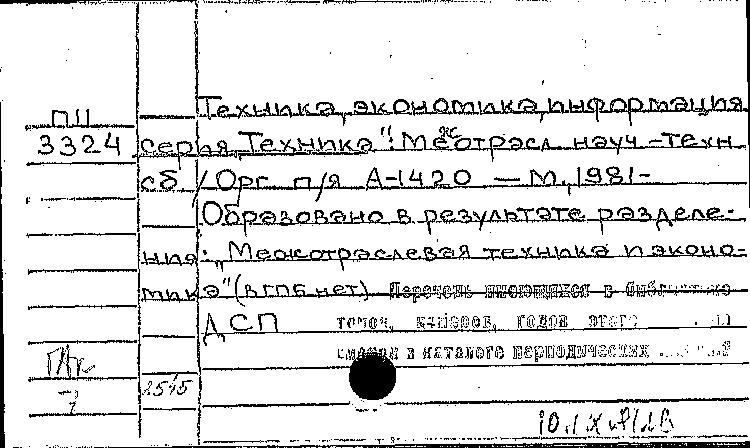 Техника, экономика, информация
П11
3324 серия „Техника": Межотрасл науч-техн
сб / Орг п/я А-1420 — М., 1981-
Образовано в результате разделе-
ния: „Межотраслевая техника и эконо-
мика" (в ГПБ нет) Перечень имеющихся в библиотеке
ДСП томов, номеров, годов этого
смотри в каталоге периодических
2515
7